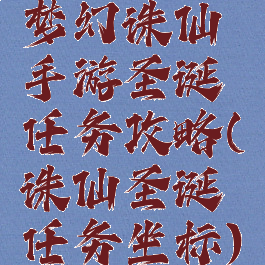 梦幻诛仙
手游圣诞
任务攻略(
诛仙圣诞
任务坐标)